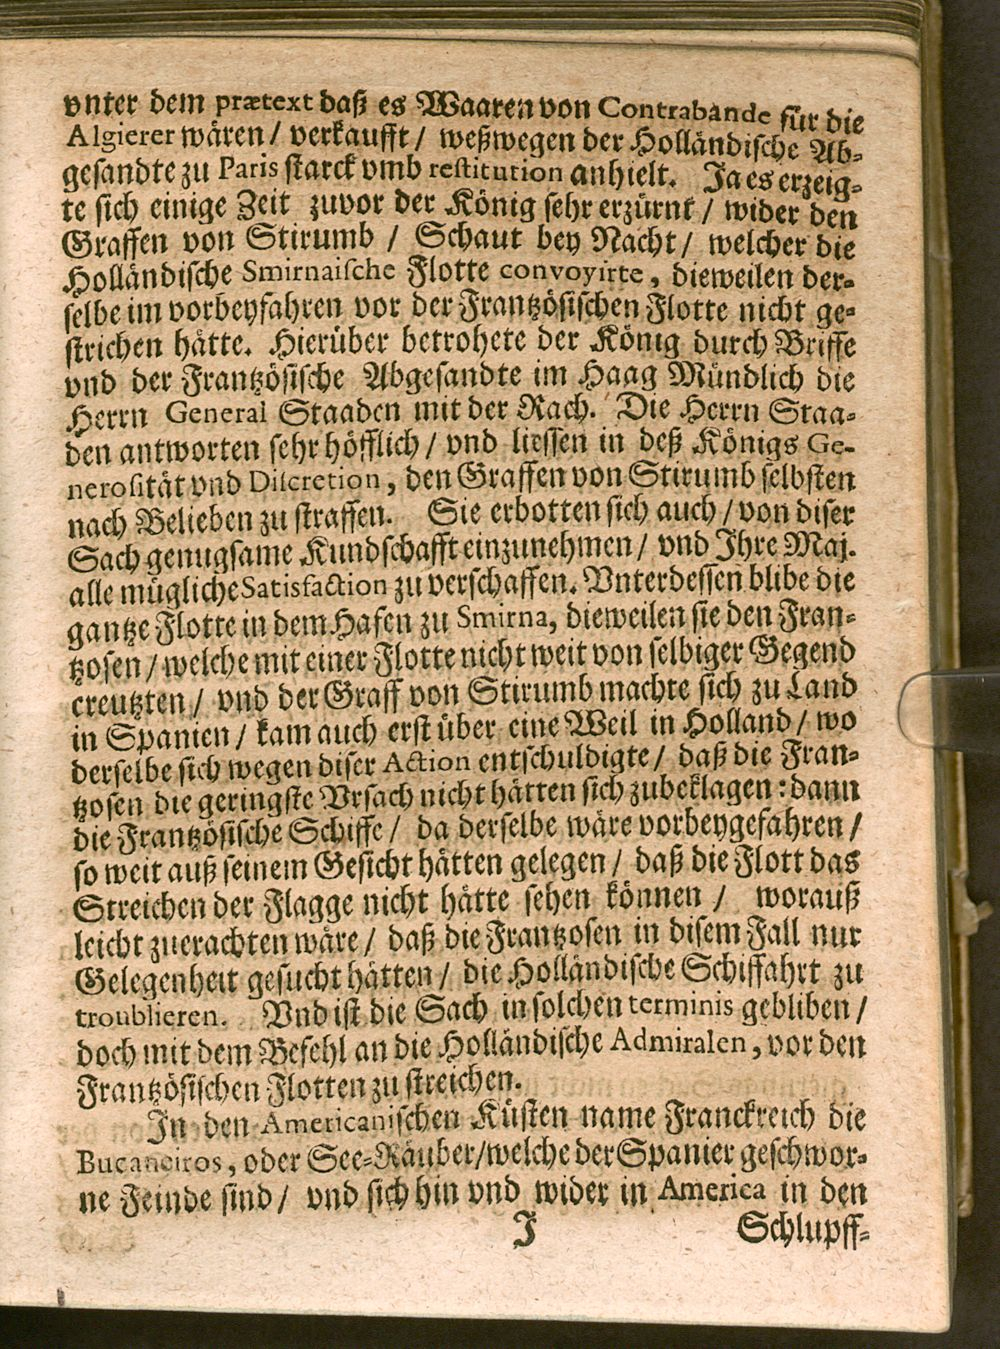 vnter dem prætext daß es Waaren von Contrabande für die
Algierer wären / verkaufft / weßwegen der Holländische Ab-
gesandte zu Paris starck vmb restitution anhielt. Ja es erzeig-
te sich einige Zeit zuvor der König sehr erzürnt / wider den
Graffen von Stirumb / Schaut bey Nacht / welcher die
Holländische Smirnaische Flotte convoyirte, dieweilen der-
selbe im vorbeyfahren vor der Frantzösischen Flotte nicht ge-
strichen hätte. Hierüber betrohete der König durch Briffe
vnd der Frantzösische Abgesandte im Haag Mündlich die
Herrn General Staaden mit der Rach. Die Herrn Staa-
den antworten sehr höfflich / vnd liessen in deß Königs Ge-
nerosität vnd Discretion, den Graffen von Stirumb selbsten
nach Belieben zu straffen. Sie erbotten sich auch / von diser
Sach genugsame Kundschafft einzunehmen / vnd Ihre Maj.
alle mügliche Satisfaction zu verschaffen. Vnterdessen blibe die
gantze Flotte in dem Hafen zu Smirna, dieweilen sie den Fran-
tzosen / welche mit einer Flotte nicht weit von selbiger Gegend
creutzten / vnd der Graff von Stirumb machte sich zu Land
in Spanien / kam auch erst über eine Weil in Holland / wo
derselbe sich wegen diser Action entschuldigte / daß die Fran-
tzosen die geringste Vrsach nicht hätten sich zubeklagen : dann
die Frantzösische Schiffe / da derselbe wäre vorbeygefahren /
so weit auß seinem Gesicht hätten gelegen / daß die Flott das
Streichen der Flagge nicht hätte sehen können / worauß
leicht zuerachten wäre / daß die Frantzosen in disem Fall nur
Gelegenheit gesucht hätten / die Holländische Schiffahrt zu
troublieren. Vnd ist die Sach in solchen terminis gebliben /
doch mit dem Befehl an die Holländische Admiralen, vor den
Frantzösischen Flotten zu streichen.
In den Americanischen Küsten name Franckreich die
Bucaneiros, oder See-Räuber / welche der Spanier geschwor-
ne Feinde sind / vnd sich hin vnd wider in America in den
I Schlupff-